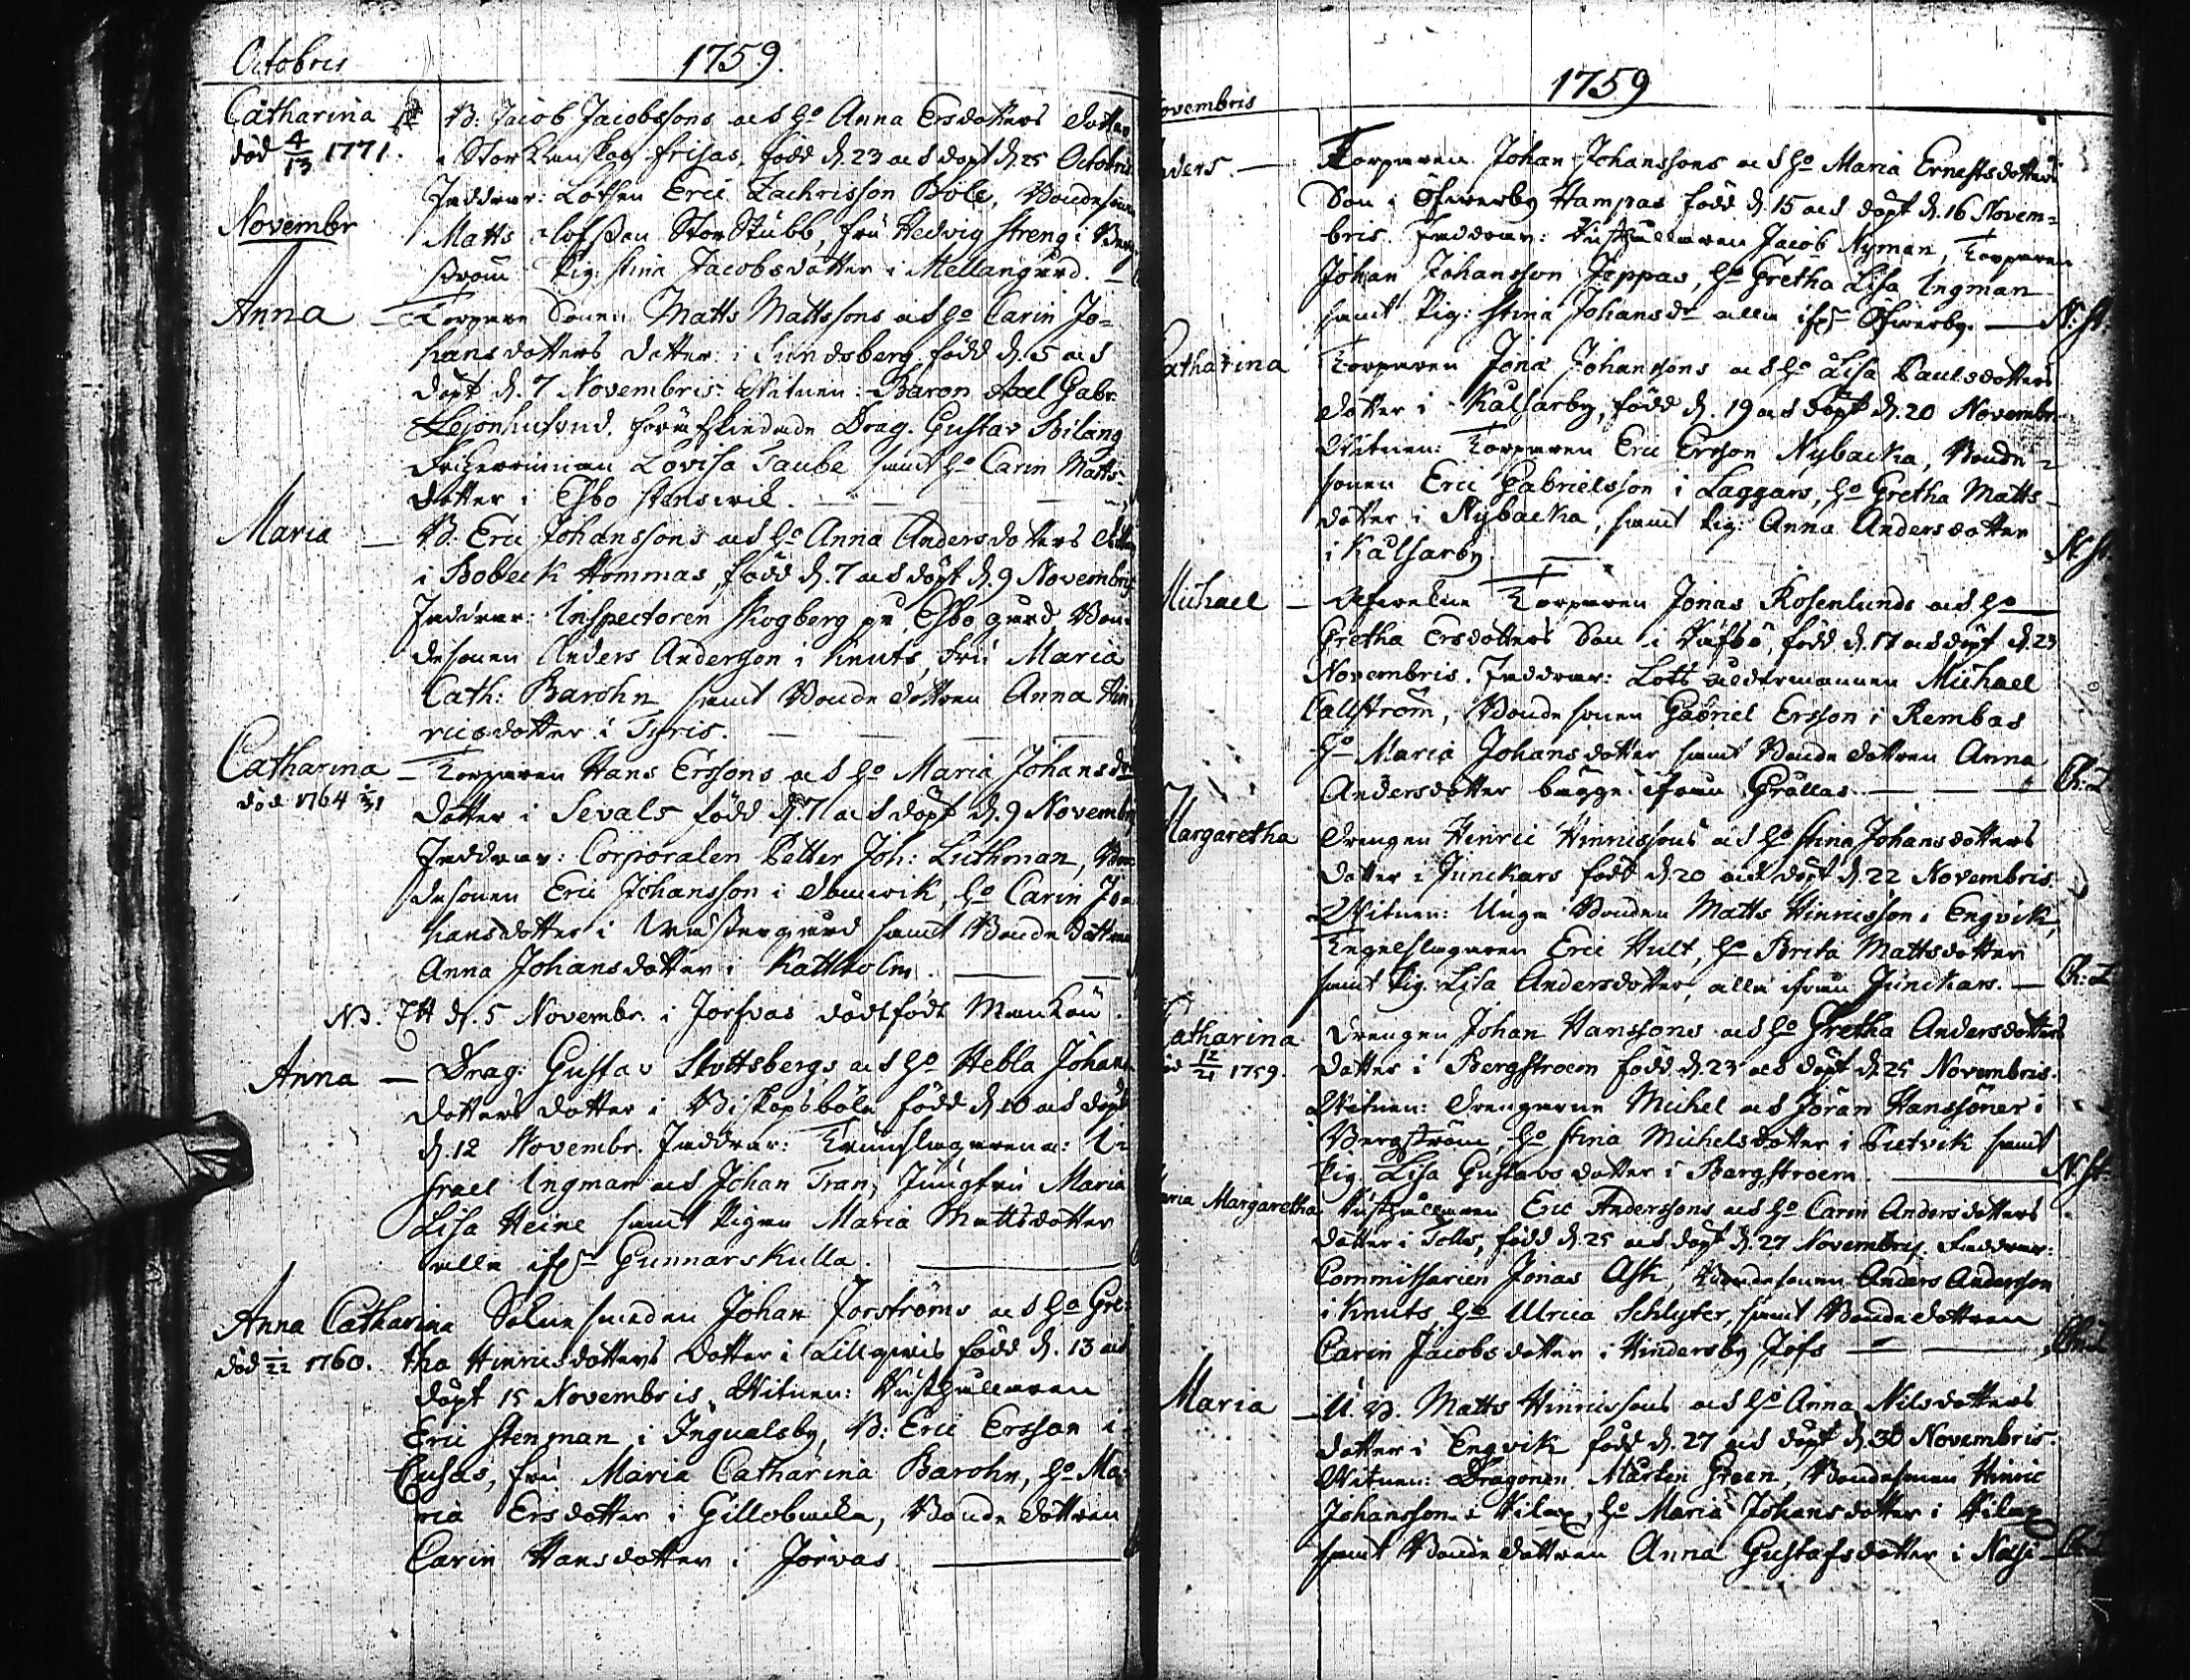 Octobris 1759.
Catharina B: Jacob Jacobssons ach ho Anna Ersdotters dotter
död 4/13 1771. i Stor Frisas född d. 23 ach döpt d. 25 Octobris
Faddrar: Lotsen Eric Zachrisson Bole, Bondesonen
Novembr Matts Olofsson Stor Stubb, fru Hedvig Streng i
ström Pig: Stina Jacobsdotter i Mellangård.
Anna — Torpare Sonen Matts Mattssons ach ho Carin Jo=
hansdotters dotter i Sundsberg född d. 5 ach
döpt d. 7 Novembris. Witnen: Baron Axel Gabr.
Lejonhufvud, Drag. Gustav Bilang
Friherrinnan Lovisa Taube samt ho Carin Matts-
dotter i Esbo Stenswik.
Maria — B. Eric Johanssons ach ho Anna Andersdotters dotter
i Bobeck Hommas, född d. 7 ach döpt d. 9 Novembris
Faddrar: Inspectoren Skogberg på Esbo gård, Bon-
desonen Anders Andersson i Knuts, Fru Maria
Cath: Barohn samt Bonde dottren Anna Hin-
ricsdotter i Tyris.
Catharina — Torparen Hans Erssons ach ho Maria Johansdr
död 1764 dotter i Sevals född d. 7 ach döpt d. 9 Novembris
Faddrar: Corporalen Petter Joh: Luthman, Bon-
desonen Eric Johansson i ho Carin Jo-
hansdotter i Wästergård samt Bonde Dottren
Anna Johansdotter i Kattholm.
NB. Ett d. 5 Novembr. i Jorfvas dödfödt Mankön.
Anna — Drag: Gustav Slottsbergs ach ho Hebla Johans
dotters dotter i Biskopsböle född d. 10 ach döpt
d. 12 Novembr. Faddrar: Trumslagarena: I-
srael Ingman ach Johan Tran, Jungfru Maria
Lisa Heine samt Pigan Maria Mattsdotter
alla ifrn Gunnarskulla.
Anna Catharina Salu smeden Johan Forströms ach ho Gre-
död 1/22 1760. tha Hinricsdotters dotter i född d. 13 ach
döpt 15 Novembris, Witnen: Rusthållaren
Eric Stenman i Ingvalsby, B: Eric Ersson i
Cusas, fru Maria Catharina Barohn, ho Ma-
ria Ersdotter i Gillobacka, Bonde dottren
Carin Hansdotter i Jorvas.
1759
ovembris
nders. — Torparen Johan Johanssons ach ho Maria Ernestsdotters
Son i Öfwerby Hampas född d. 15 ach döpt d. 16 Novem-
bris. Faddrar: Rusthållaren Jacob Nyman, Torparen
Johan Johansson Joppas, ho Gretha Lisa Ingman
samt Pig: Stina Johansdr alla ifrn Öfwerby. — N: St:
atharina Torparen Jona Johanssons ach ho Lisa Paulsdotters
dotter i Kalsarby, född d. 19 ach döpt d. 20 Novembr.
Witnen: Torparen Eric Ersson Nybacka, Bonde=
sonen Eric Gabrielsson i Laggars, ho Gretha Matts-
dotter i Nybacka, samt Pig: Anna Andersdotter
i Kalsarby. — N: St.
Michael — Afwelne Torparen Jonas Rosenlunds ach ho
Gretha Ersdotters Son i född d. 17 ach döpt d. 23
Novembris. Faddrar: Lots åldermannen Michael
Callström, Bondesonen Gabriel Ersson i Rembas
ho Maria Johansdotter samt Bonde dottren Anna
Andersdotter bägge ifrån Grållas. — Ch: L
Margaretha Drengen Hinric Hinricssons ach ho Stina Johansdotters
dotter i Junckars född d. 20 ach döpt d. 22 Novembris.
Witnen: Unge Bonden Matts Hinricsson i Engvik,
Tegelslagaren Eric Hult, ho Brita Mattsdotter
samt Pig: Lisa Andersdotter, alla ifrån Junckars. — Ch: L
Catharina Drengen Johan Hanssons ach ho Gretha Andersdotters
öd 12/21 1759. dotter i Bergstroem född d. 23 ach döpt d. 25 Novembris.
Witnen: Drengarne Michel ach Jöran Hanssöner i
Bergström, ho Stina Michelsdotter i Pietvik samt
Pig: Lisa Gustavsdotter i Bargstroem. — N: St:
aria Margaretha Rusthållaren Eric Anderssons ach ho Carin Andersdotters
dotter i Tolls, född d. 25 ach döpt d. 27 Novembris. Faddrar:
Commissarien Jonas Ask, Bondesonen Anders Andersson
i Knuts, ho Ulrica Schlyter, samt Bonde dottren
Carin Jacobsdotter i Hindersby Jofs — Ch: L
Maria — U. B. Matts Hinricssons ach ho Anna Nilsdotters
dotter i Engvik född d. 27 ach döpt d. 30 Novembris.
Witnen: Dragonen Mårten Green, Bondesonen Hinric
Johansson i Kilax, ho Maria Johansdotter i Kilax
samt Bonde dottren Anna Gustafsdotter i